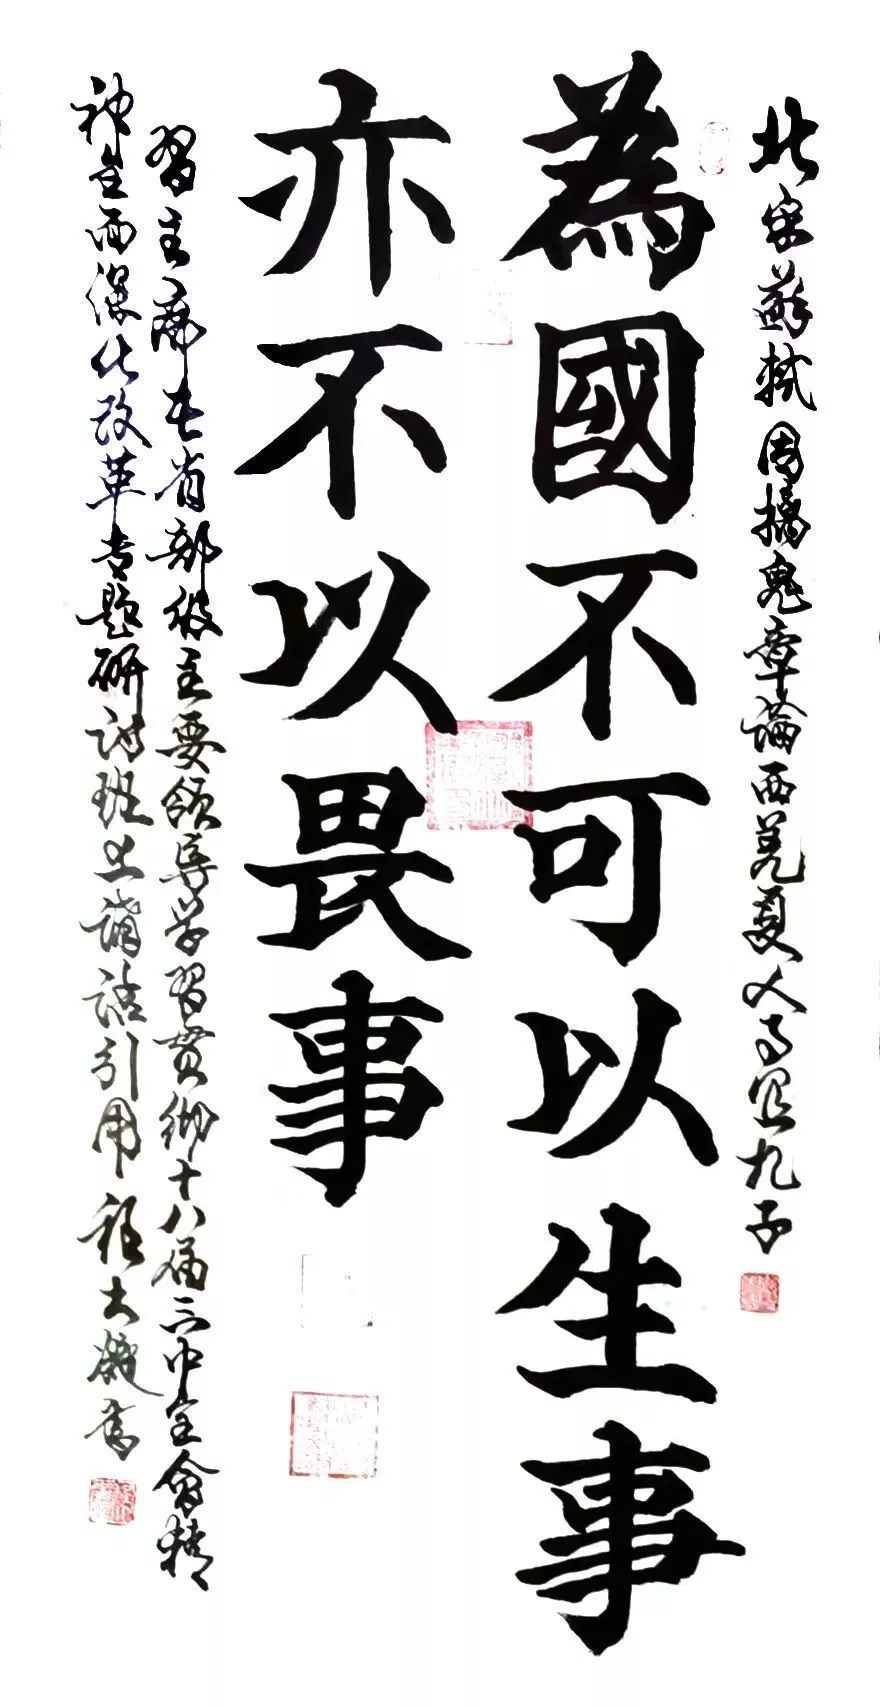 北宋蘇軾因擒鬼章論西羌夏人事宜札子
為國不可以生事
亦不以畏事
習主席在省部級主要領導学習贯彻十八届三中全會精
神全面深化改革专题研讨班上講話引用 程大